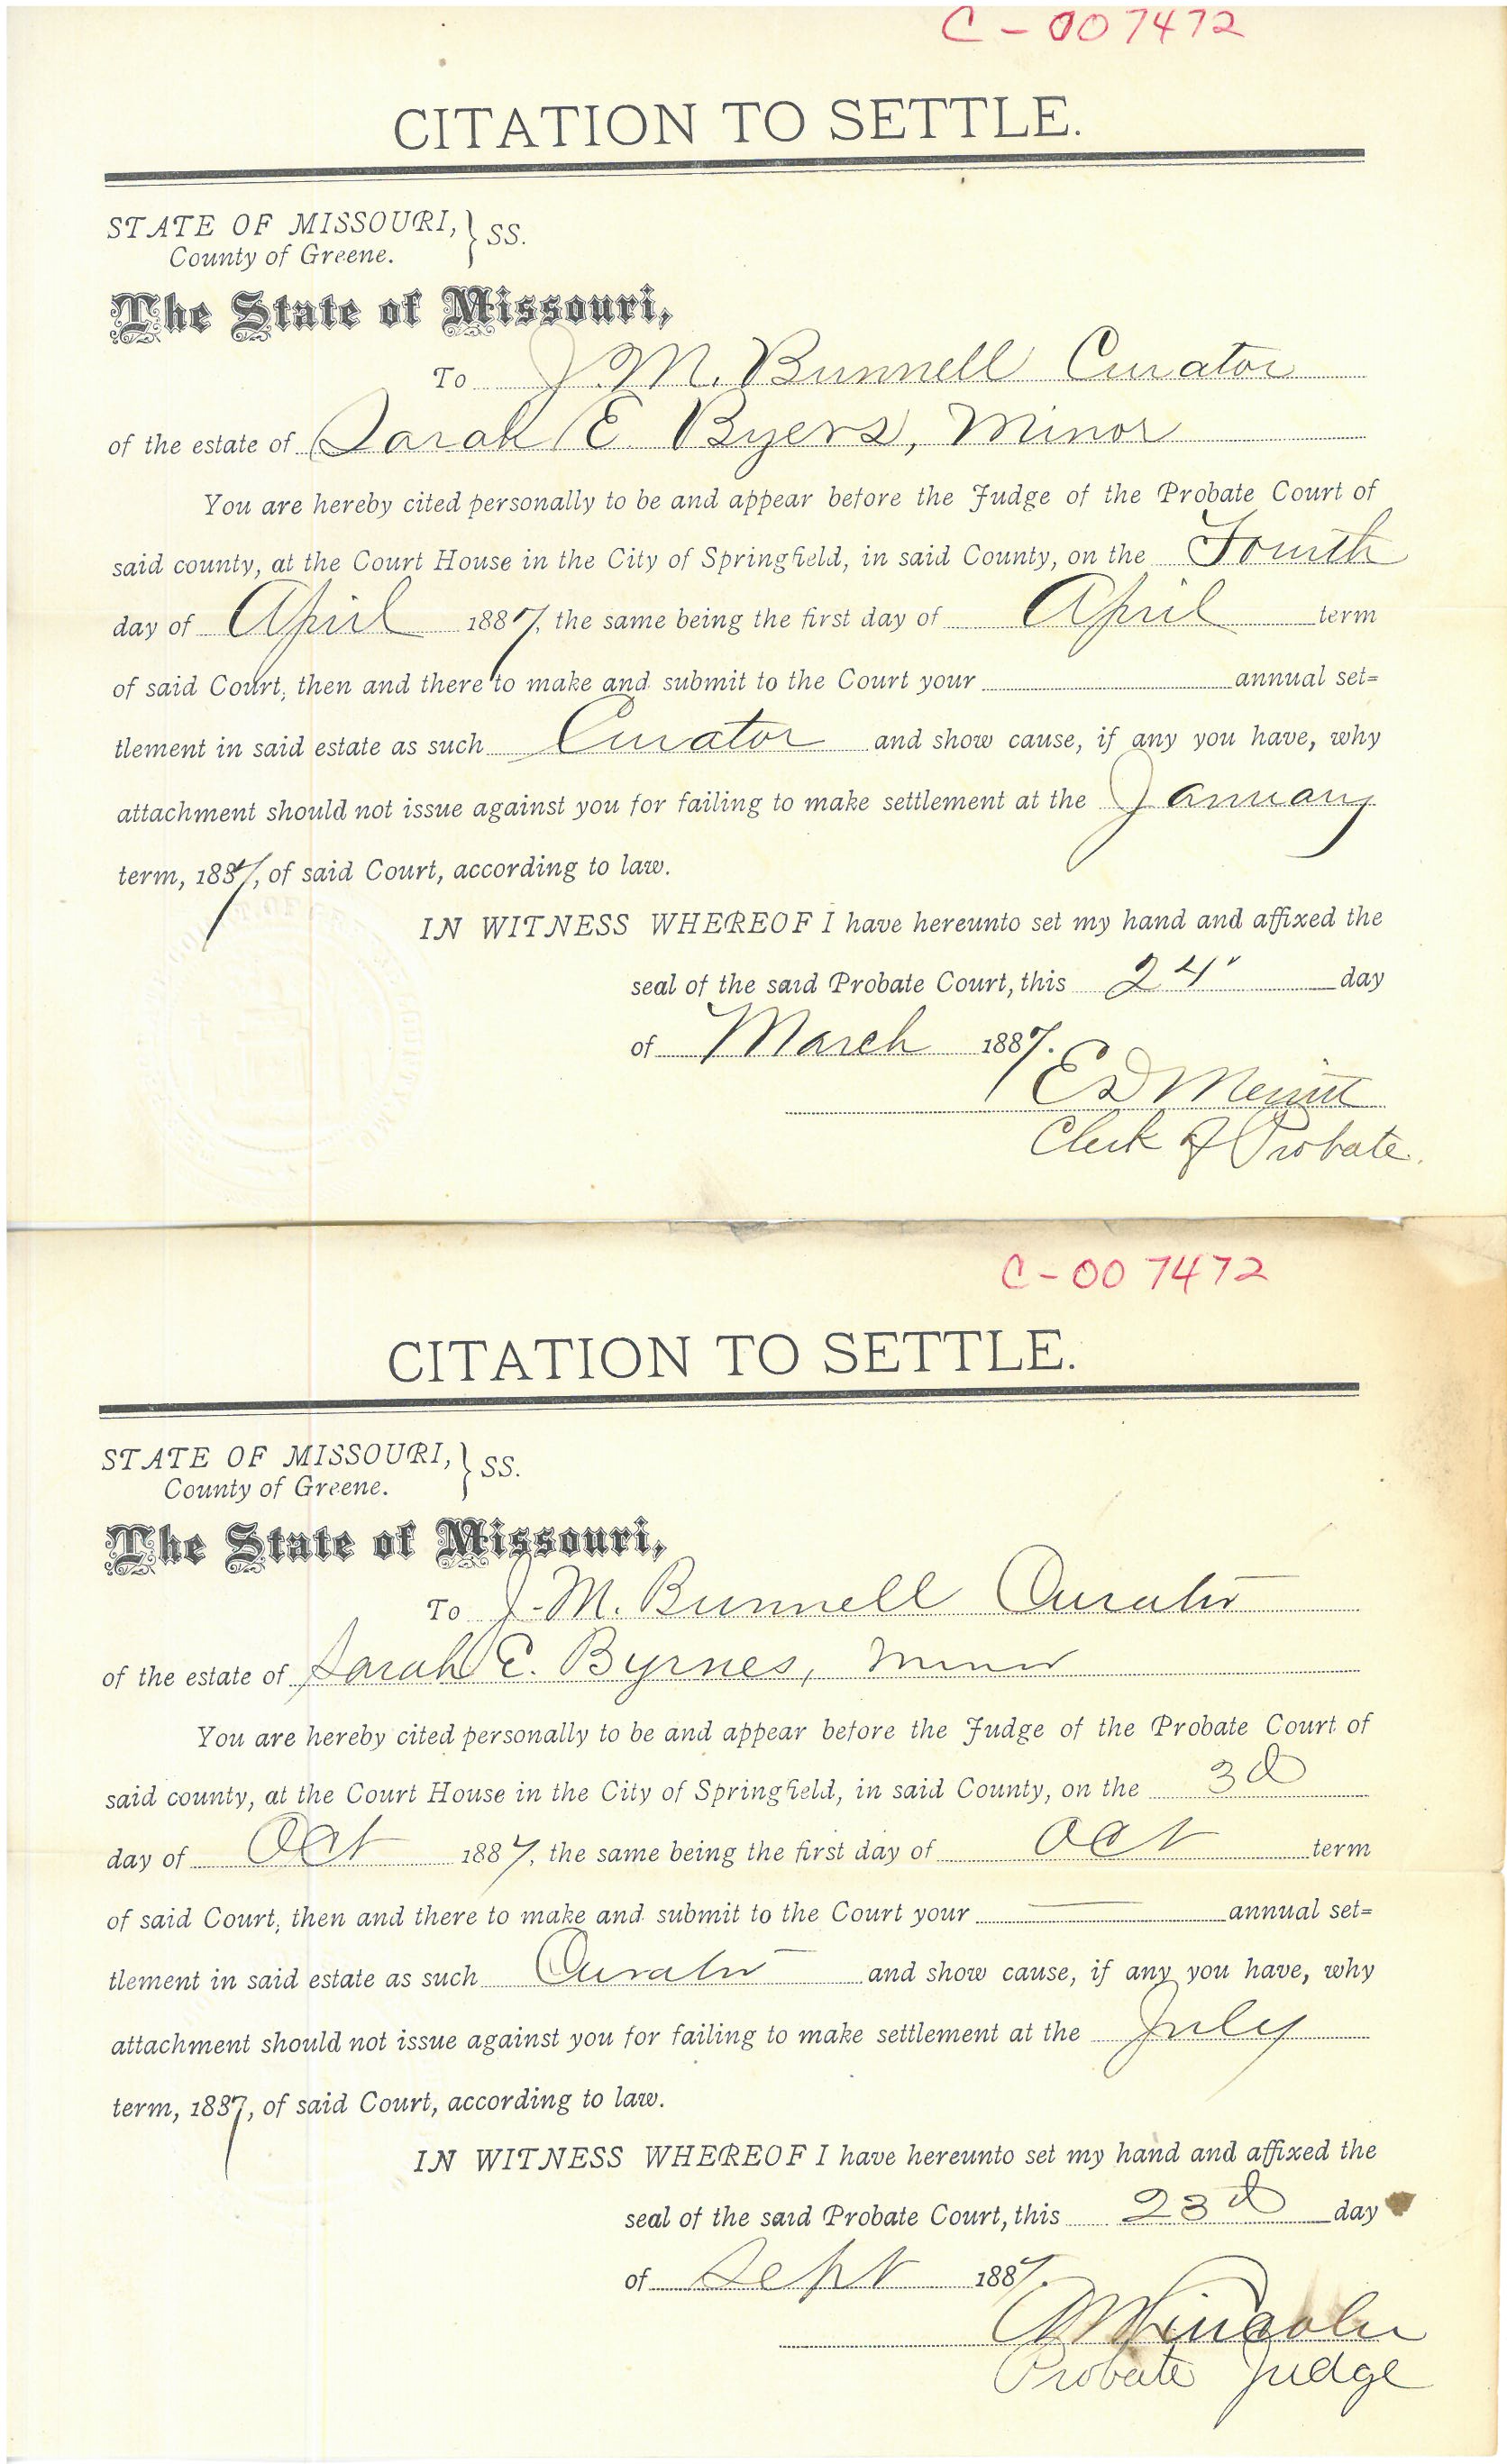 C-007472
CITATION TO SETTLE.
STATE OF MISSOURI, } SS.
County of Greene.
The State of Missouri,
To J. M. Bunnell Curator
of the estate of Sarah E. Byers, Minor
You are hereby cited personally to be and appear before the Judge of the Probate Court of
said county, at the Court House in the City of Springfield, in said County, on the Fourth
day of April 1887, the same being the first day of April term
of said Court, then and there to make and submit to the Court your annual set=
tlement in said estate as such Curator and show cause, if any you have, why
attachment should not issue against you for failing to make settlement at the January
term, 1887, of said Court, according to law.
IN WITNESS WHEREOF I have hereunto set my hand and affixed the
seal of the said Probate Court, this 24" day
of March 1887.
E D Merritt
Clerk of Probate.
C-007472
CITATION TO SETTLE.
STATE OF MISSOURI, } SS.
County of Greene.
The State of Missouri,
To J. M. Bunnell Curator
of the estate of Sarah E. Byrnes, Minor
You are hereby cited personally to be and appear before the Judge of the Probate Court of
said county, at the Court House in the City of Springfield, in said County, on the 3d
day of Oct 1887, the same being the first day of Oct term
of said Court, then and there to make and submit to the Court your — annual set=
tlement in said estate as such Curator and show cause, if any you have, why
attachment should not issue against you for failing to make settlement at the July
term, 1887, of said Court, according to law.
IN WITNESS WHEREOF I have hereunto set my hand and affixed the
seal of the said Probate Court, this 23d day
of Sept 1887.
Lincoln
Probate Judge